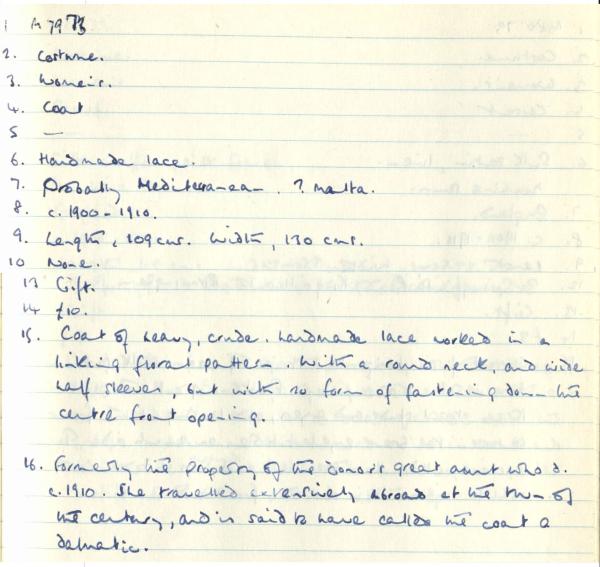 1 M 79 73
2. Costume.
3. Women's.
4. Coat
5 —
6. Handmade lace.
7. Probably Mediterranean. ? Malta.
8. c. 1900 - 1910.
9. Length, 109 cms. Width, 130 cms.
10 None.
13 Gift.
14 £10.
15. Coat of heavy, crude, handmade lace worked in a
linking floral pattern. With a round neck, and wide
half sleeves, but with no form of fastening down the
centre front opening.
16. Formerly the property of the donor's great aunt who d.
c. 1910. She travelled extensively abroad at the turn of
the century, and is said to have called the coat a
dalmatic.